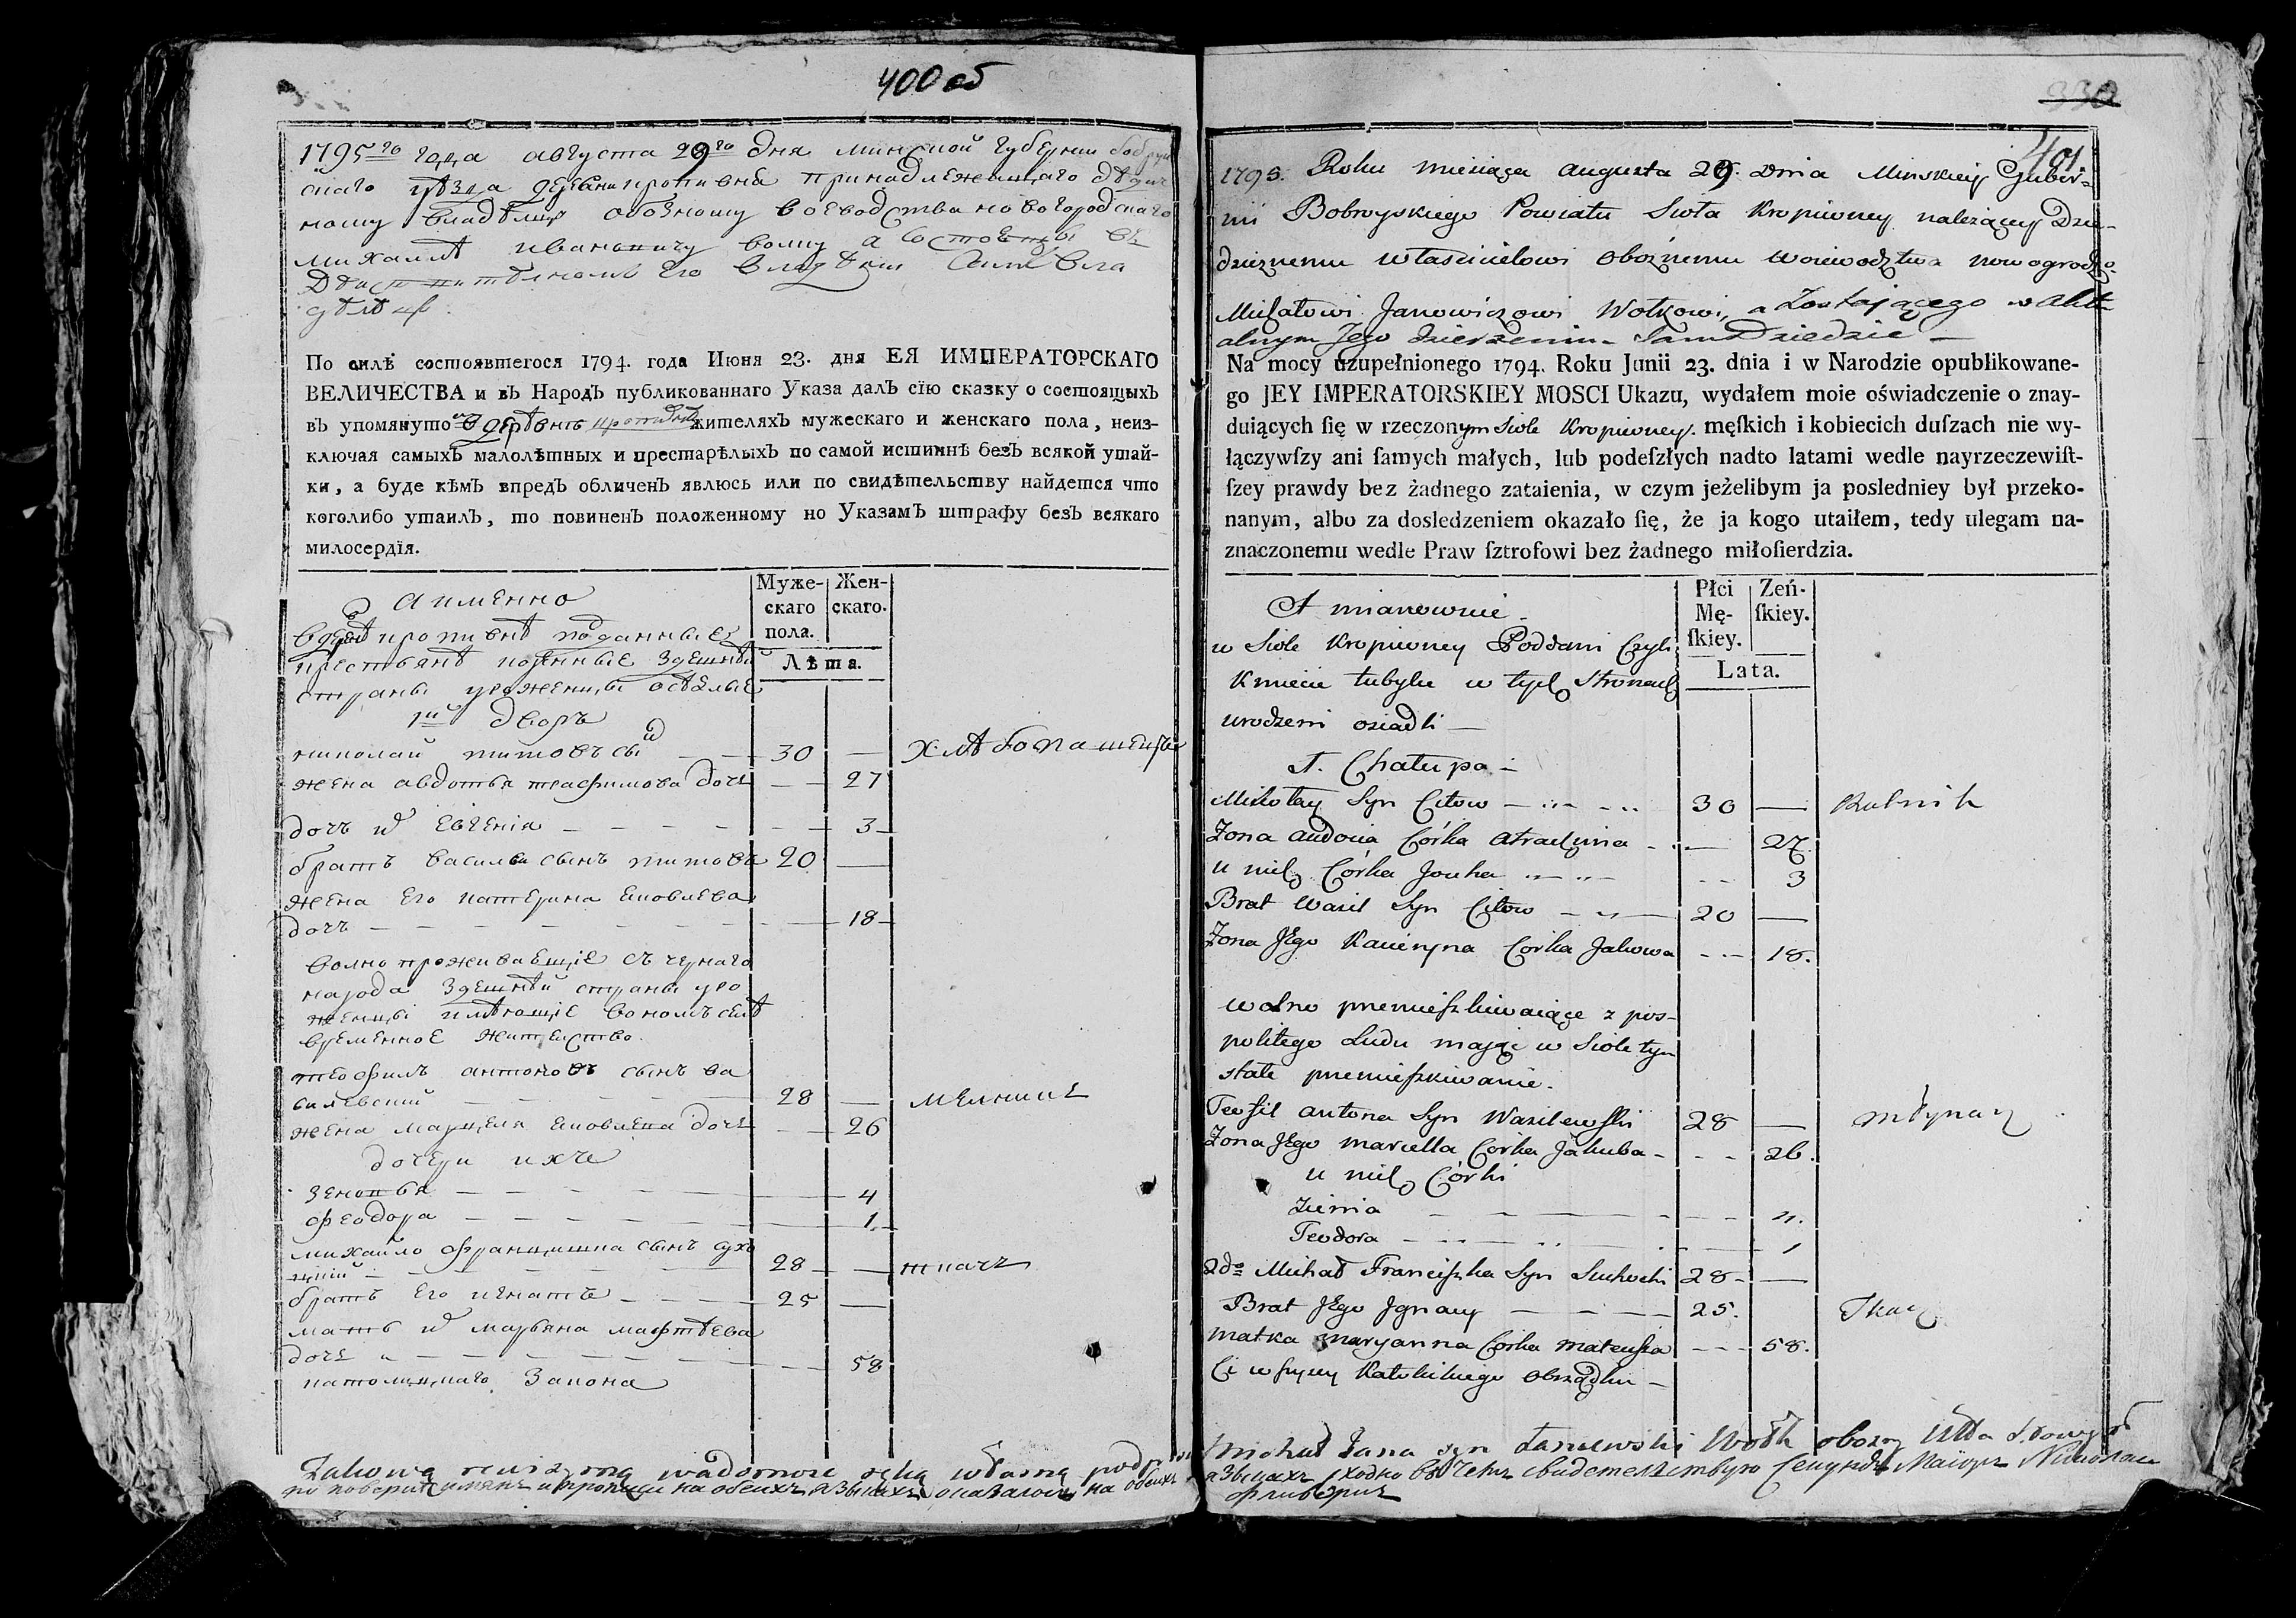 400 об
1795го года августа 29го дня минской губернии бобруй
скаго уѣзда деревни кропивнѣ принадлежащаго дѣдич
ному владѣлцу обозному воеводства новогородскаго
михаилѣ ивановичу волку а состоѣтъ въ
его владѣнии
По силѣ состоявшегося 1794. года Июня 23. дня ЕЯ ИМПЕРАТОРСКАГО
ВЕЛИЧЕСТВА и въ Народъ публикованнаго Указа далъ сїю сказку о состоящыхъ
въ упомянуто деревнѣ кропивнѣ жителяхъ мужескаго и женскаго пола, неиз-
ключая самыхъ малолѣтных и престарѣлыхъ по самой истиннѣ безъ всякой утай-
ки, а буде кѣмъ впредъ обличенъ явлюсь или по свидѣтельству найдется что
коголибо утаилъ, то повиненъ положенному но Указамъ штрафу безъ всякаго
милосердїя.
Муже-скаго пола. Жен-скаго.
Лѣта.
а именно
кропивнѣ подданные
крестьянѣ коренные здешнѣй
страны уроженцы осѣлые
1й дворъ
николай титовъ сы 30 — хлѣбопашецъ
жена авдотья трафимова доч — 27
дочъ их евгения — 3
братъ василеи сынъ титовъ 20 —
жена его катерина яковлева
дочъ — 18
волно проживаещие съ чернаго
народа здешнѣй страны уро
женцы имѣющие вономъ селѣ
временное жителство.
теофилъ антоновъ сынъ ва
силевский 28 — мелникъ
жена марцеля яковлева доч — 26
дочери ихъ
зеновья — 4
феодора — 1
михайло францишка сынъ сухо
цкий 28 — ткачъ
братъ его игнатъ 25 —
мать их марьяна матѣева
доч — 58
католицкаго закона
330
401.
1795. Roku miesiąca augusta 29. Dnia Minskiey Guber-
nii Bobruyskiego Powiatu Sioła Kropiwney należącey Dzie-
dzicznemu właścicielowi oboźnemu woiewodztwa nowogrodzo
Michałowi Janowiczowi Wołkowi, a Zostaiącego w aktu-
alnym Jego dzierżeniu Sam Dziedzic —
Na mocy uzupełnionego 1794. Roku Junii 23. dnia i w Narodzie opublikowane-
go JEY IMPERATORSKIEY MOSCI Ukazu, wydałem moie oświadczenie o znay-
duiących ſię w rzeczonym Siole Kropiwney. męſkich i kobiecich duſzach nie wy-
łączywſzy ani ſamych małych, lub podeſzłych nadto latami wedle nayrzeczewiſt-
ſzey prawdy bez żadnego zataienia, w czym jeżelibym ja posledniey był przeko-
nanym, albo za dosledzeniem okazało ſię, że ja kogo utaiłem, tedy ulegam na-
znaczonemu wedle Praw ſztrofowi bez żadnego miłoſierdzia.
Płci Mę-ſkiey. Zeń-ſkiey.
Lata.
A mianowicie —
w Siole Kropiwney Poddani Czyli
Kmiecie tubylce w tych Stronach
urodzeni osiadli —
1. Chałupa —
Mikołay Syn Citow 30 — Rolnik
Zona audocia Córka — 27.
u nich Córka — 3
Brat Wasil Syn Citow 20 —
Zona Jego Kacieryna Corka Jakowa — 18.
wolno przemieſzkiwaiące z pos-
politego Ludu maiące w Siole tym
stałe przemieſzkiwanie.
Teofil antona Syn Wasilewſki 28 — młynarz
Zona Jego marcella Corka Jakuba — 26.
u nich Córki
Teodora — 1
2do Michał Franciſzka Syn Suchocki 28 —
Brat Jego Jgnacy 25. Tkacz
matka maryanna Corka mateuſza — 58.
Ci wſzyscy Katolickiego obrządku —
Takową rewizyiną wiadomosc ręką własną podp
Michał Jana syn Łaniewski Wołk obozny Wtta Nowogrod
по поверке имянъ и прописи на обеихъ языкахъ оказалось на обеихъ
языкахъ сходно въ чемъ свидетелствую Секундъ Маiоръ Николай